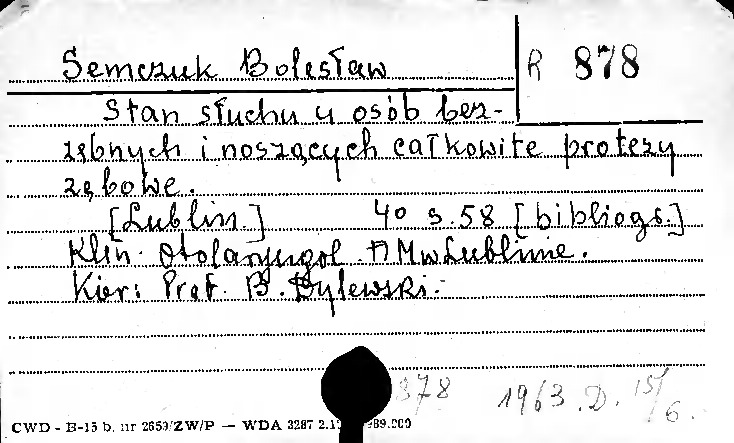 Semczuk Bolesław R 878
Stan słuchu u osób bez-
zębnych i noszących całkowite protezy
zębowe.
[Lublin.] 4o s. 58 [bibliogr.]
Klin. Otolaryngol. AM w Lublinie.
Kier: Prof. B. Dylewski.
878 1963. D. 15/6.
CWD - B-15 b. nr 2659/ZW/P — WDA 3287